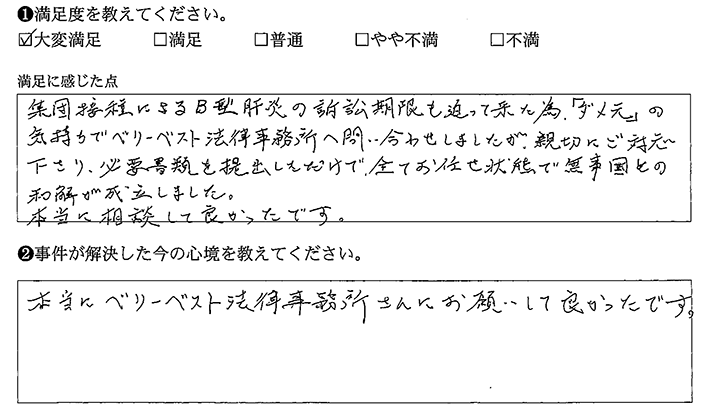 ❶満足度を教えてください。
☑大変満足 □満足 □普通 □やや不満 □不満
満足に感じた点
集団接種によるB型肝炎の訴訟期限も迫って来た為、「ダメ元」の
気持ちでベリーベスト法律事務所へ問い合わせしましたが、親切にご対応
下さり、必要書類を提出しただけで、全てお任せ状態で無事国との
和解が成立しました。
本当に相談して良かったです。
❷事件が解決した今の心境を教えてください。
本当にベリーベスト法律事務所さんにお願いして良かったです。